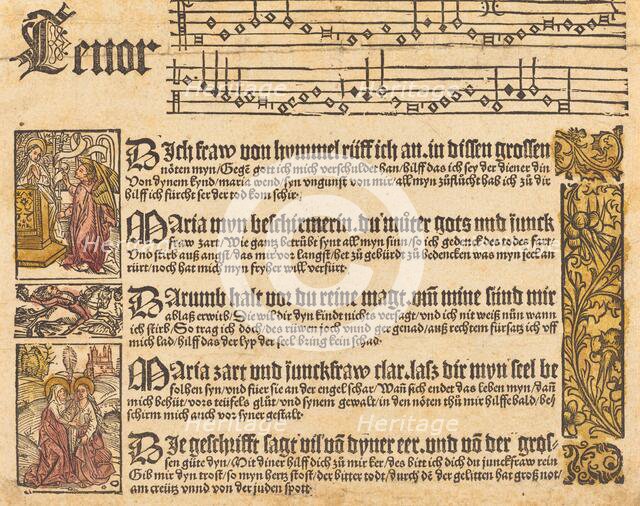 Tenor
Dich fraw von hymmel rüff ich an. in dissen grossen
nöten myn / Gegē gott ich mich verschuldet han / hilff das ich sey der diener din
Von dynem kynd / maria wend / syn vngunst von mir / all myn zůflücht hab ich zů dir
hilff ich fürcht ser der tod kom schir.
Maria myn beschirmerin. du můter gots vnd junck
fraw zart / Wie gantz betrübt synt all myn sinn / so ich gedenck des todes fart
Vnd stirb auß angst / das mir vor langst / het zů gebürdt zů bedencken was myn seel an
rürt / noch hat mich myn fryher will verfürt.
Darumb halt vor du reine magt. vm̄ mine sünd mir
ablaß erwirb / Sie wil dir dyn kindt nicht versagt / vnd ich nit weiß nün wann
ich stirb / So trag ich doch / des rüwen joch vnnd ger genad / auß rechtem fürsatz ich vff
mich lad / hilff das der lyp der seel bring kein schad.
Maria zart vnd jünckfraw clar. lasz dir myn seel be
folhen syn / vnd füer sie an der engel schar / Wan̄ sich endet das leben myn / dan̄
mich behüt / vors teüfels glüt / vnd synem gewalt / in den nöten thů mir hilffe bald / be-
schirm mich auch vor syner gestalt.
Die geschrifft sagt vil vō dyner eer. vnd vō der gros-
sen güte dyn / Mit diner hilff dich zů mir ker / des bitt ich dich du junckfraw rein
Gib mir dyn trost / so myn hertz stost / der bitter todt / durch dē der gelitten hat groß not /
am creütz vnnd von der juden spott.
Heritage
Images